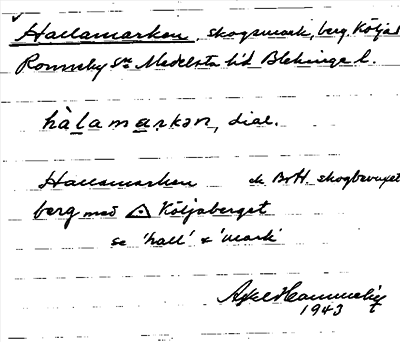 Hallamarken, skogsmark, berg, Köljab
Ronneby sn Medelsta hd Blekinge l.
hàlamarkən, dial.
Hallamarken ek BrH. skogbevuxet
berg med △ Köljaberget
se 'hall' & 'mark'
Axel
1943